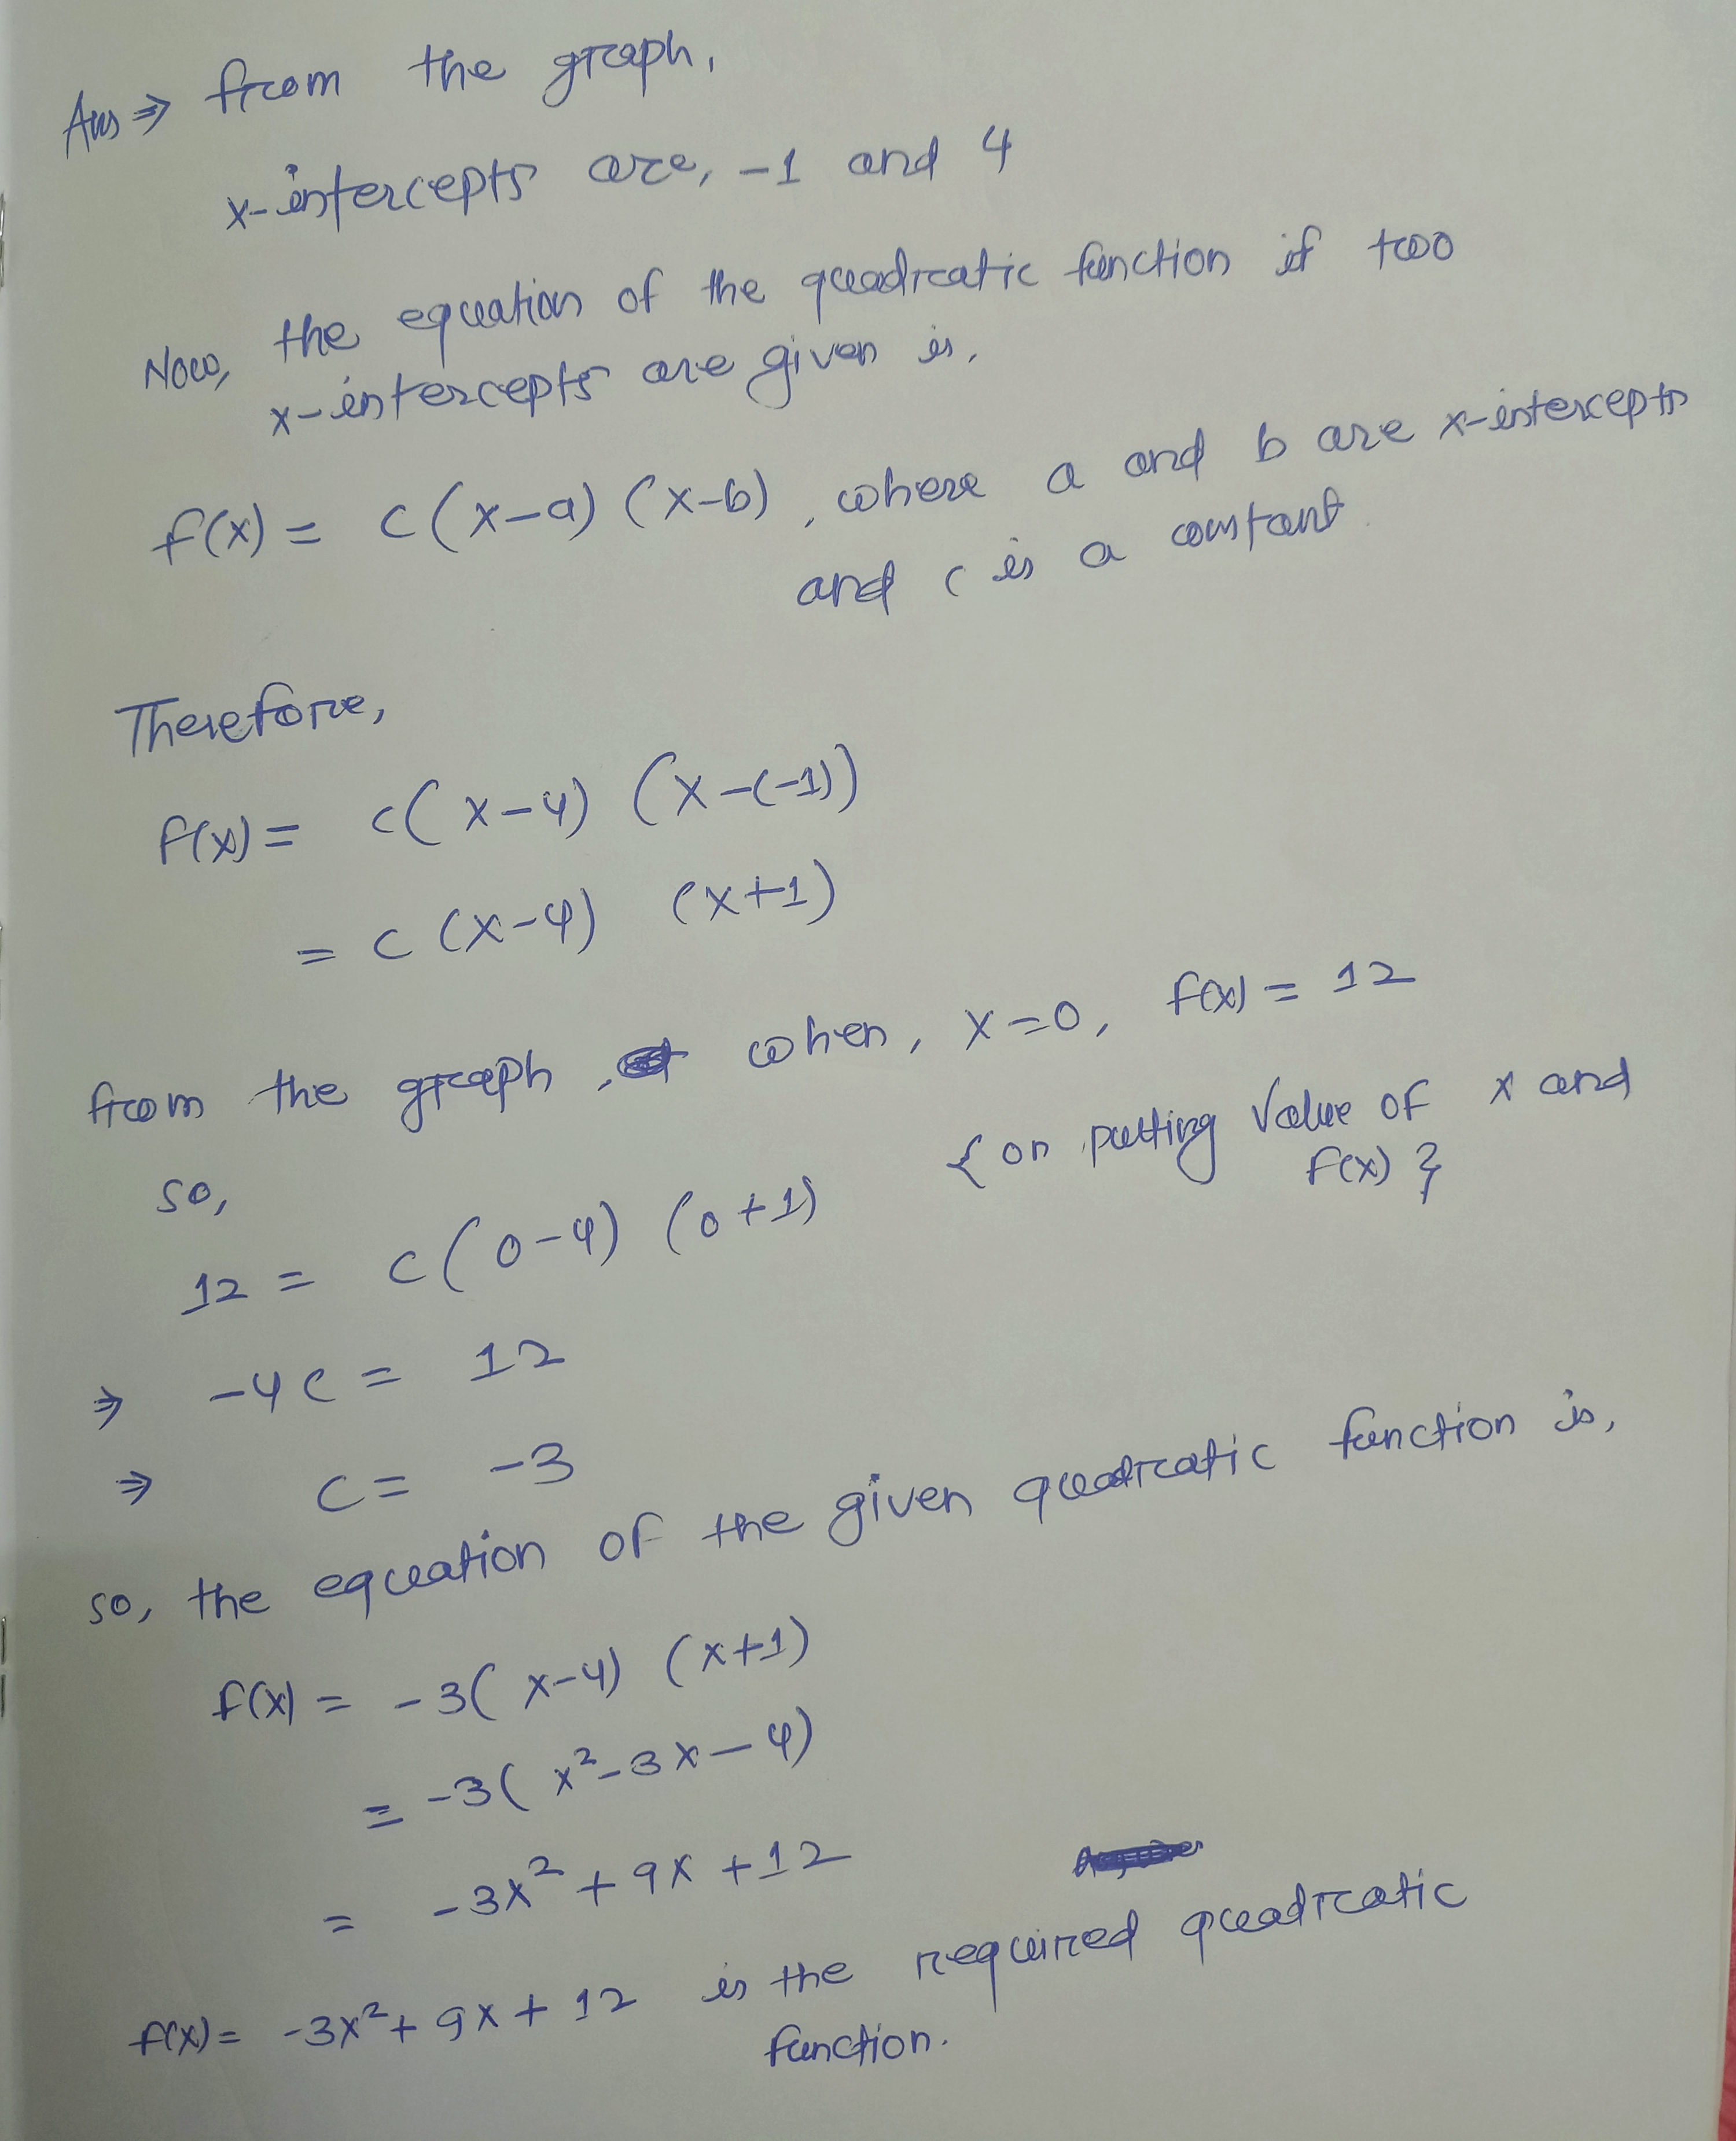 Ans ⇒ from the graph,
x-intercepts are, -1 and 4
Now, the equation of the quadratic function if two
x-intercepts are given is,
f(x) = c(x-a) (x-b), where a and b are x-intercepts
and c is a constant
Therefore,
f(x) = c(x-4) (x-(-1))
= c(x-4) (x+1)
from the graph, when, x=0, f(x) = 12
so, {on putting value of x and
f(x)}
12 = c(0-4) (0+1)
⇒ -4c = 12
⇒ c = -3
so, the equation of the given quadratic function is,
f(x) = -3(x-4) (x+1)
= -3(x²-3x-4)
= -3x²+9x+12
f(x) = -3x²+9x+12 is the required quadratic
function.